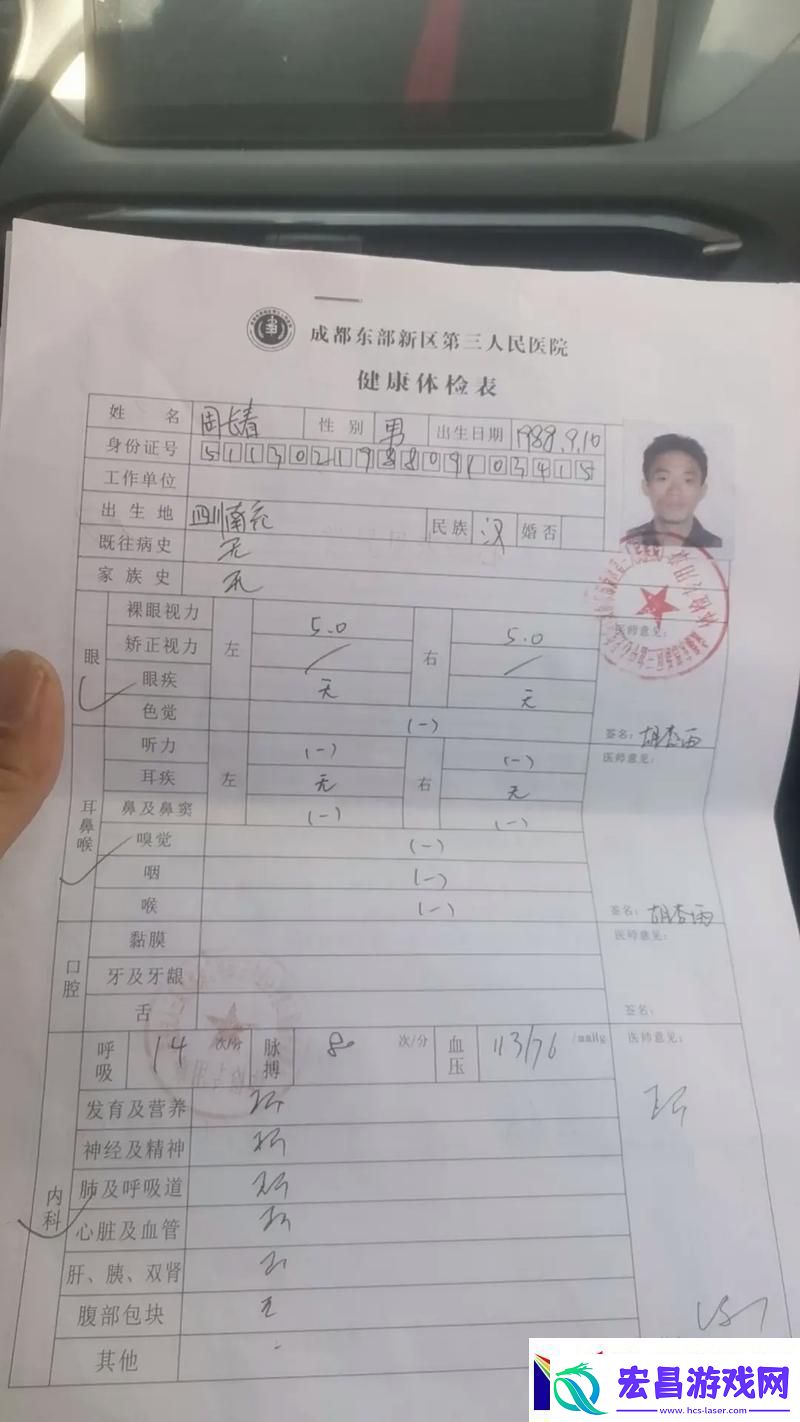 成都东部新区第三人民医院
健康体检表
姓名 周长春 性别 男 出生日期 1988.9.10
身份证号 511302198809103415
工作单位
出生地 四川南充 民族 汉 婚否
既往病史 无
家族史 无
眼 裸眼视力 左 5.0 右 5.0 医师意见：
矫正视力 / /
眼疾 无 无
色觉 (-) 签名：胡杏雨
耳鼻喉 听力 左 (-) 右 (-) 医师意见：
耳疾 无 无
鼻及鼻窦 (-) (-)
嗅觉 (-)
咽 (-)
喉 (-) 签名：胡杏雨
口腔 黏膜 医师意见：
牙及牙龈
舌 签名：
内科 呼吸 14 次/分 脉搏 80 次/分 血压 113/76 /mmHg 医师意见：
发育及营养
神经及精神
肺及呼吸道
心脏及血管
肝、胰、双肾
腹部包块 无
其他
宏昌游戏网
www.hcs-laser.com